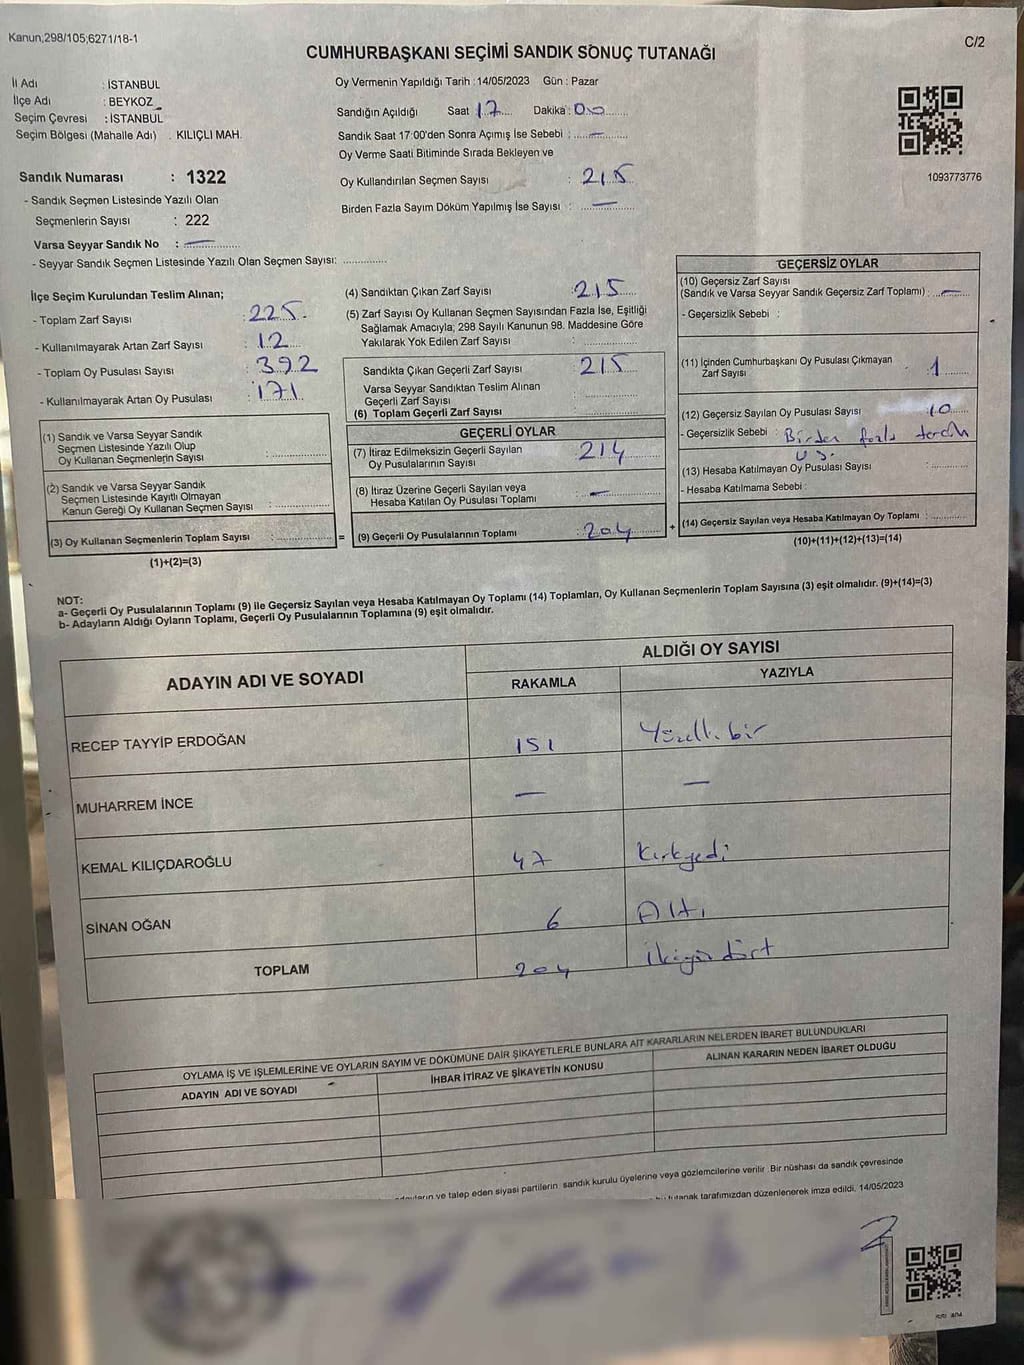 Kanun;298/105;6271/18-1
C/2
CUMHURBAŞKANI SEÇİMİ SANDIK SONUÇ TUTANAĞI
İl Adı : İSTANBUL
İlçe Adı : BEYKOZ
Seçim Çevresi : İSTANBUL
Seçim Bölgesi (Mahalle Adı) : KILIÇLI MAH.
Sandık Numarası : 1322
- Sandık Seçmen Listesinde Yazılı Olan
Seçmenlerin Sayısı : 222
Varsa Seyyar Sandık No : —
- Seyyar Sandık Seçmen Listesinde Yazılı Olan Seçmen Sayısı: ..............
Oy Vermenin Yapıldığı Tarih : 14/05/2023 Gün : Pazar
Sandığın Açıldığı Saat 17 Dakika : 00
Sandık Saat 17:00'den Sonra Açımış İse Sebebi : —
Oy Verme Saati Bitiminde Sırada Bekleyen ve
Oy Kullandırılan Seçmen Sayısı : 215
Birden Fazla Sayım Döküm Yapılmış İse Sayısı : —
1093773776
İlçe Seçim Kurulundan Teslim Alınan;
- Toplam Zarf Sayısı : 225
- Kullanılmayarak Artan Zarf Sayısı : 12
- Toplam Oy Pusulası Sayısı : 392
- Kullanılmayarak Artan Oy Pusulası : 171
(1) Sandık ve Varsa Seyyar Sandık
Seçmen Listesinde Yazılı Olup
Oy Kullanan Seçmenlerin Sayısı : ..............
(2) Sandık ve Varsa Seyyar Sandık
Seçmen Listesinde Kayıtlı Olmayan
Kanun Gereği Oy Kullanan Seçmen Sayısı : ..............
(3) Oy Kullanan Seçmenlerin Toplam Sayısı : ..............
(1)+(2)=(3)
=
(4) Sandıktan Çıkan Zarf Sayısı : 215
(5) Zarf Sayısı Oy Kullanan Seçmen Sayısından Fazla İse, Eşitliği
Sağlamak Amacıyla; 298 Sayılı Kanunun 98. Maddesine Göre
Yakılarak Yok Edilen Zarf Sayısı : ..............
Sandıkta Çıkan Geçerli Zarf Sayısı : 215
Varsa Seyyar Sandıktan Teslim Alınan
Geçerli Zarf Sayısı : ..............
(6) Toplam Geçerli Zarf Sayısı : ..............
GEÇERLİ OYLAR
(7) İtiraz Edilmeksizin Geçerli Sayılan
Oy Pusulalarının Sayısı : 214
(8) İtiraz Üzerine Geçerli Sayılan veya
Hesaba Katılan Oy Pusulası Toplamı : —
(9) Geçerli Oy Pusulalarının Toplamı : 204
+
GEÇERSİZ OYLAR
(10) Geçersiz Zarf Sayısı
(Sandık ve Varsa Seyyar Sandık Geçersiz Zarf Toplamı) : —
- Geçersizlik Sebebi :
(11) İçinden Cumhurbaşkanı Oy Pusulası Çıkmayan
Zarf Sayısı : 1
(12) Geçersiz Sayılan Oy Pusulası Sayısı : 10
- Geçersizlik Sebebi : Birden fazla tercih
(13) Hesaba Katılmayan Oy Pusulası Sayısı : ..............
- Hesaba Katılmama Sebebi :
(14) Geçersiz Sayılan veya Hesaba Katılmayan Oy Toplamı : ..............
(10)+(11)+(12)+(13)=(14)
NOT:
a- Geçerli Oy Pusulalarının Toplamı (9) ile Geçersiz Sayılan veya Hesaba Katılmayan Oy Toplamı (14) Toplamları, Oy Kullanan Seçmenlerin Toplam Sayısına (3) eşit olmalıdır. (9)+(14)=(3)
b- Adayların Aldığı Oyların Toplamı, Geçerli Oy Pusulalarının Toplamına (9) eşit olmalıdır.
ADAYIN ADI VE SOYADI
ALDIĞI OY SAYISI
RAKAMLA YAZIYLA
RECEP TAYYİP ERDOĞAN 151 Yüzellibir
MUHARREM İNCE — —
KEMAL KILIÇDAROĞLU 47 Kırkyedi
SİNAN OĞAN 6 Altı
TOPLAM 204 İkiyüzdört
OYLAMA İŞ VE İŞLEMLERİNE VE OYLARIN SAYIM VE DÖKÜMÜNE DAİR ŞİKAYETLERLE BUNLARA AİT KARARLARIN NELERDEN İBARET BULUNDUKLARI
ADAYIN ADI VE SOYADI İHBAR İTİRAZ VE ŞİKAYETİN KONUSU ALINAN KARARIN NEDEN İBARET OLDUĞU
ve talep eden siyasi partilerin sandık kurulu üyelerine veya gözlemcilerine verilir. Bir nüshası da sandık çevresinde
tutanak tarafımızdan düzenlenerek imza edildi. 14/05/2023
2